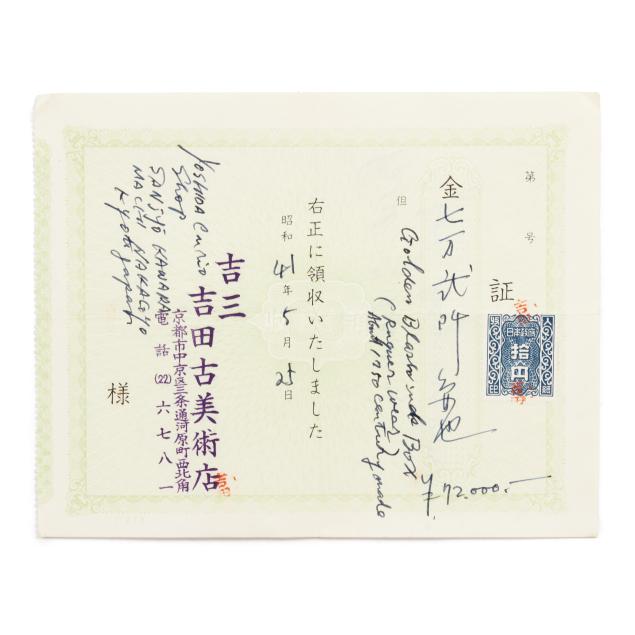 第 号
証
日本政府
拾円
金 七万弐阡 円也
¥72.000.-
但
Golden Blash inde Box
(Raquer wear)
About 1750 century made
右正に領収いたしました
昭和 41年 5月 25日
吉三
吉田古美術店
京都市中京区三条通河原町西北角
電話(22)六七八一
YOSHIDA Curio
Shop
SANJYO KAWARA
MACHI NAKAGYO
Kyoto Japan
様